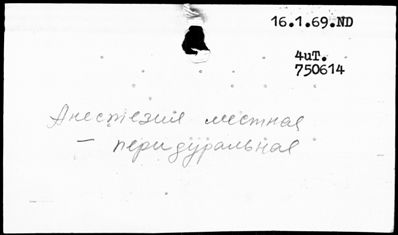 16.1.69.ND
4иТ.
750614
Анестезия местная
— перидуральная